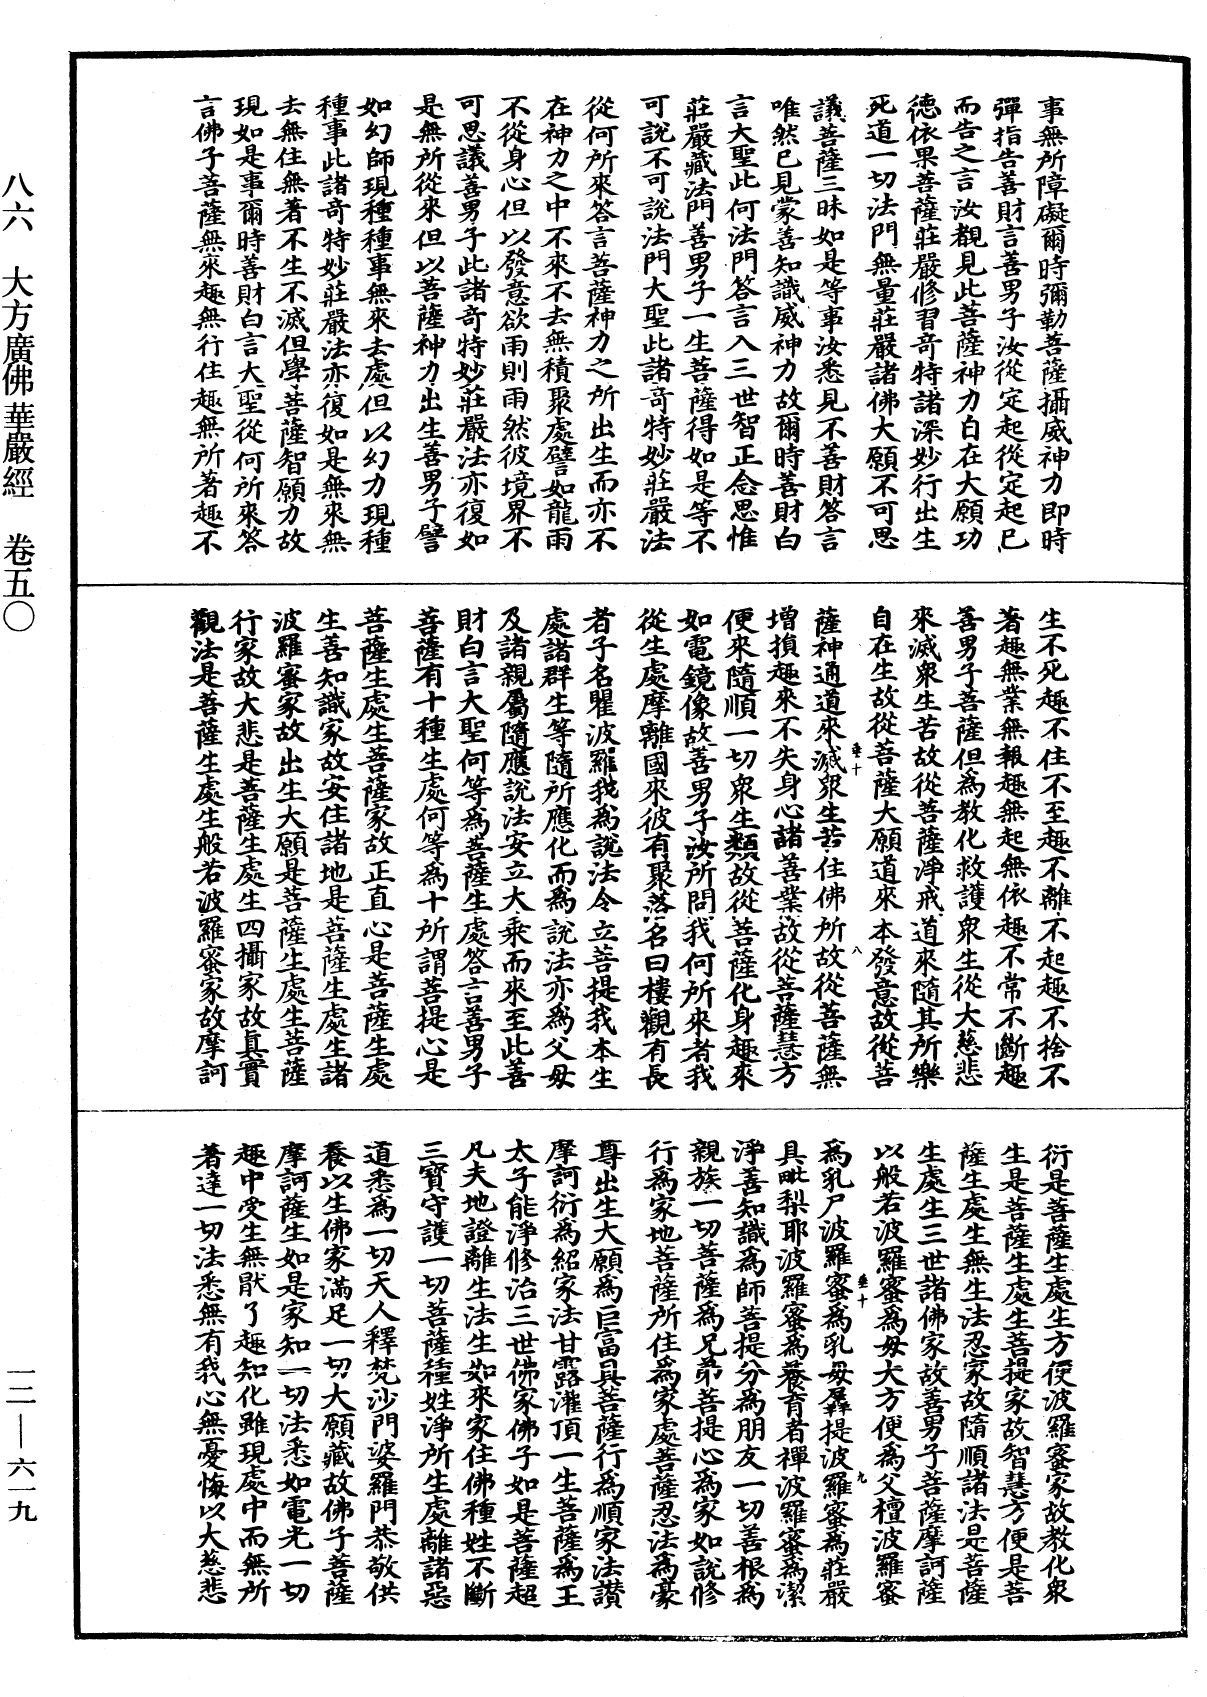 事無所障礙爾時彌勒菩薩攝威神力即時
彈指告善財言善男子汝從定起從定起已
而告之言汝觀見此菩薩神力自在大願功
德依果菩薩莊嚴修習奇特諸深妙行出生
死道一切法門無量莊嚴諸佛大願不可思
議菩薩三昧如是等事汝悉見不善財答言
唯然已見蒙善知識威神力故爾時善財白
言大聖此何法門答言入三世智正念思惟
莊嚴藏法門善男子一生菩薩得如是等不
可說不可說法門大聖此諸奇特妙莊嚴法
從何所來答言菩薩神力之所出生而亦不
在神力之中不來不去無積聚處譬如龍雨
不從身心但以發意欲雨則雨然彼境界不
可思議善男子此諸奇特妙莊嚴法亦復如
是無所從來但以菩薩神力出生善男子譬
如幻師現種種事無來去處但以幻力現種
種事此諸奇特妙莊嚴法亦復如是無來無
去無住無著不生不滅但學菩薩智願力故
現如是事爾時善財白言大聖從何所來答
言佛子菩薩無來趣無行住趣無所著趣不
生不死趣不住不至趣不離不起趣不捨不
著趣無業無報趣無起無依趣不常不斷趣
善男子菩薩但為教化救護衆生從大慈悲
來滅衆生苦故從菩薩淨戒道來隨其所樂
自在生故從菩薩大願道來本發意故從菩
薩神通道來滅衆生苦住佛所故從菩薩無
垂十
八
增損趣來不失身心諸善業故從菩薩慧方
便來隨順一切衆生類故從菩薩化身趣來
如電鏡像故善男子汝所問我何所來者我
從生處摩離國來彼有聚落名曰樓觀有長
者子名瞿波羅我為說法令立菩提我本生
處諸群生等隨所應化而為說法亦為父母
及諸親屬隨應說法安立大乘而來至此善
財白言大聖何等為菩薩生處答言善男子
菩薩有十種生處何等為十所謂菩提心是
菩薩生處生菩薩家故正直心是菩薩生處
生善知識家故安住諸地是菩薩生處生諸
波羅蜜家故出生大願是菩薩生處生菩薩
行家故大悲是菩薩生處生四攝家故真實
觀法是菩薩生處生般若波羅蜜家故摩訶
衍是菩薩生處生方便波羅蜜家故教化衆
生是菩薩生處生菩提家故智慧方便是菩
薩生處生無生法忍家故隨順諸法是菩薩
生處生三世諸佛家故善男子菩薩摩訶薩
以般若波羅蜜為母大方便為父檀波羅蜜
為乳尸波羅蜜為乳母羼提波羅蜜為莊嚴
垂十
九
具毗梨耶波羅蜜為養育者禪波羅蜜為潔
淨善知識為師菩提分為朋友一切善根為
親族一切菩薩為兄弟菩提心為家如說修
行為家地菩薩所住為家處菩薩忍法為豪
尊出生大願為巨富具菩薩行為順家法讚
摩訶衍為紹家法甘露灌頂一生菩薩為王
太子能淨修治三世佛家佛子如是菩薩超
凡夫地證離生法生如來家住佛種姓不斷
三寶守護一切菩薩種姓淨所生處離諸惡
道悉為一切天人釋梵沙門婆羅門恭敬供
養以生佛家滿足一切大願藏故佛子菩薩
摩訶薩生如是家知一切法悉如電光一切
趣中受生無厭了趣知化雖現處中而無所
著達一切法悉無有我心無憂悔以大慈悲
八六　大方廣佛華嚴經　卷五〇
一二—六一九